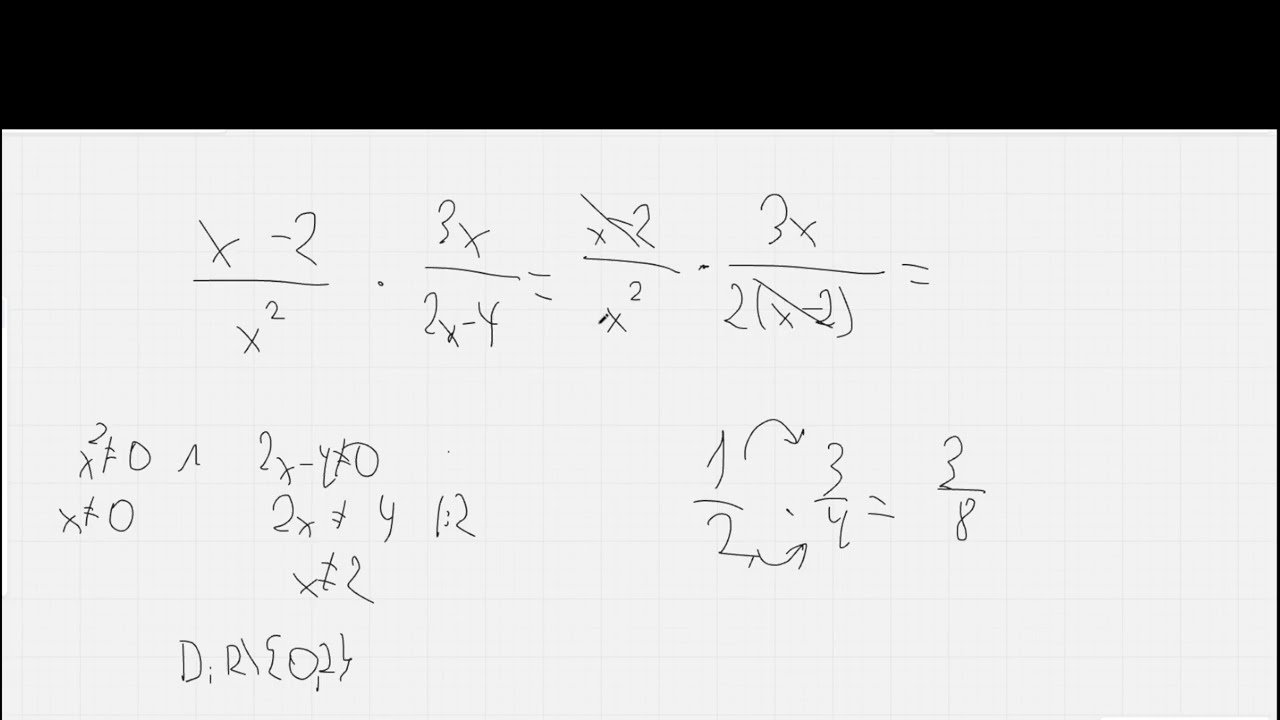 x-2/x² · 3x/2x-4 = x-2/x² · 3x/2(x-2) =
x²≠0 ∧ 2x-4≠0
x≠0 2x≠4 |:2
x≠2
D: R\{0,2}
1/2 · 3/4 = 3/8